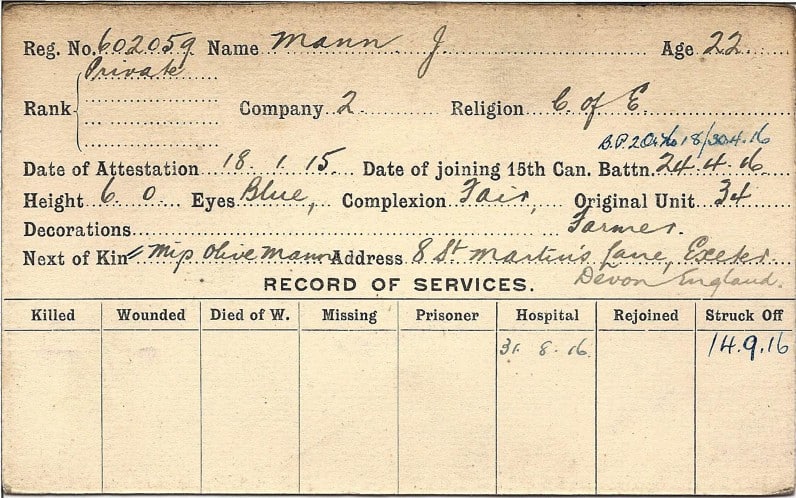 Reg. No. 602059 Name Mann J. Age 22.
Private
Rank Company 2 Religion C of E.
18/30.4.16
Date of Attestation 18.1.15. Date of joining 15th Can. Battn. 24.4.16
Height 6.0 Eyes Blue, Complexion Fair, Original Unit 34
Decorations Farmer.
Next of Kin Miss Olive Mann Address 8 St Martin's Lane, Exeter
Devon England.
RECORD OF SERVICES.
Killed Wounded Died of W. Missing Prisoner Hospital Rejoined Struck Off
31.8.16. 14.9.16